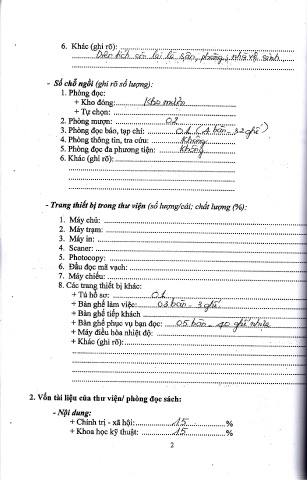 6. Khác (ghi rõ):
Diện tích còn lại là sân, phòng, nhà vệ sinh
- Số chỗ ngồi (ghi rõ số lượng):
1. Phòng đọc:
+ Kho đóng: Kho mượn
+ Tự chọn:
2. Phòng mượn: 02
3. Phòng đọc báo, tạp chí: 01 (4 bàn - 32 ghế)
4. Phòng thông tin, tra cứu: Không
5. Phòng đọc đa phương tiện: Không
6. Khác (ghi rõ):
- Trang thiết bị trong thư viện (số lượng/cái; chất lượng (%):
1. Máy chủ:
2. Máy trạm:
3. Máy in:
4. Scaner:
5. Photocopy:
6. Đầu đọc mã vạch:
7. Máy chiếu:
8. Các trang thiết bị khác:
+ Tủ hồ sơ: 01
+ Bàn ghế làm việc: 03 bàn - 3 ghế
+ Bàn ghế tiếp khách
+ Bàn ghế phục vụ bạn đọc: 05 bàn - 40 ghế nhựa
+ Máy điều hòa nhiệt độ:
+ Khác (ghi rõ):
2. Vốn tài liệu của thư viện/ phòng đọc sách:
- Nội dung:
+ Chính trị - xã hội: 15 %
+ Khoa học kỹ thuật: 15 %
2